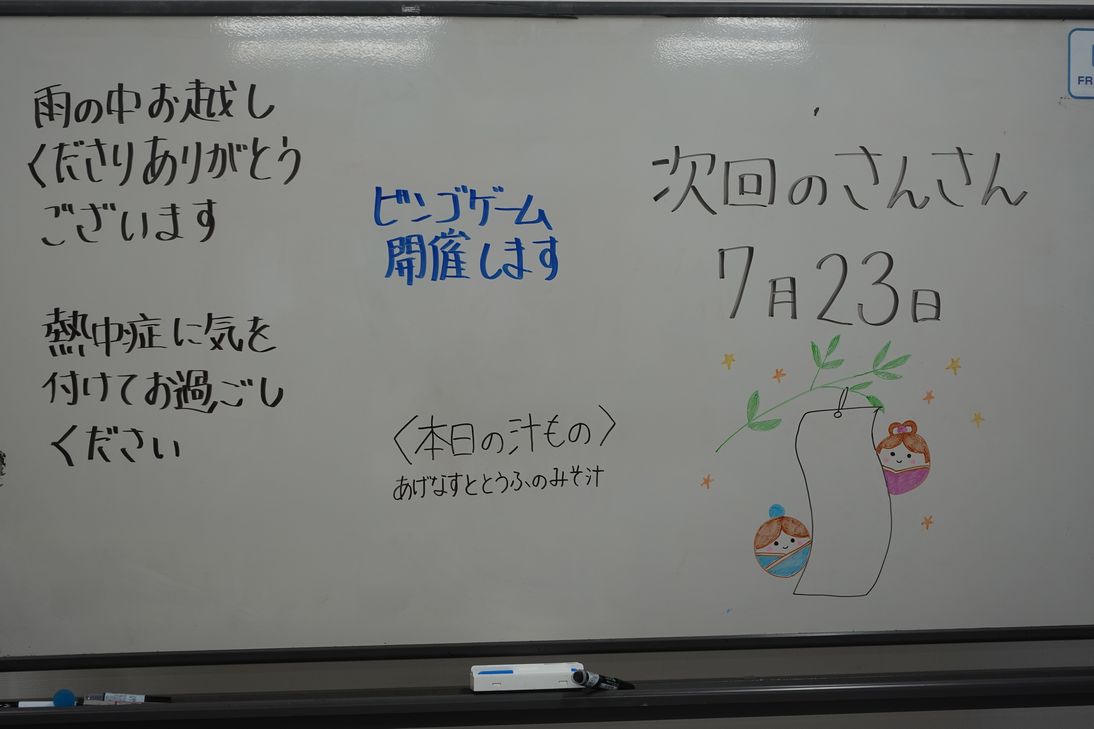 雨の中お越し
くださりありがとう
ございます
熱中症に気を
付けてお過ごし
ください
ビンゴゲーム
開催します
〈本日の汁もの〉
あげなすととうふのみそ汁
次回のさんさん
7月23日
FR